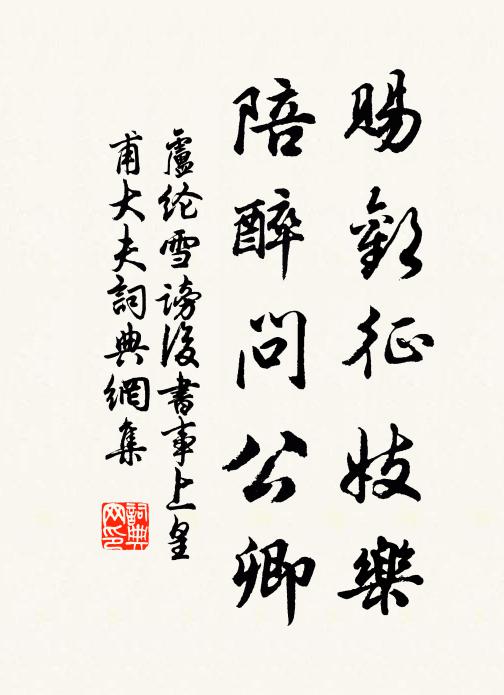 賜歡征妓樂
陪醉問公卿
盧纶雪謗後書事上皇
甫大夫詞典網集
詞典网印